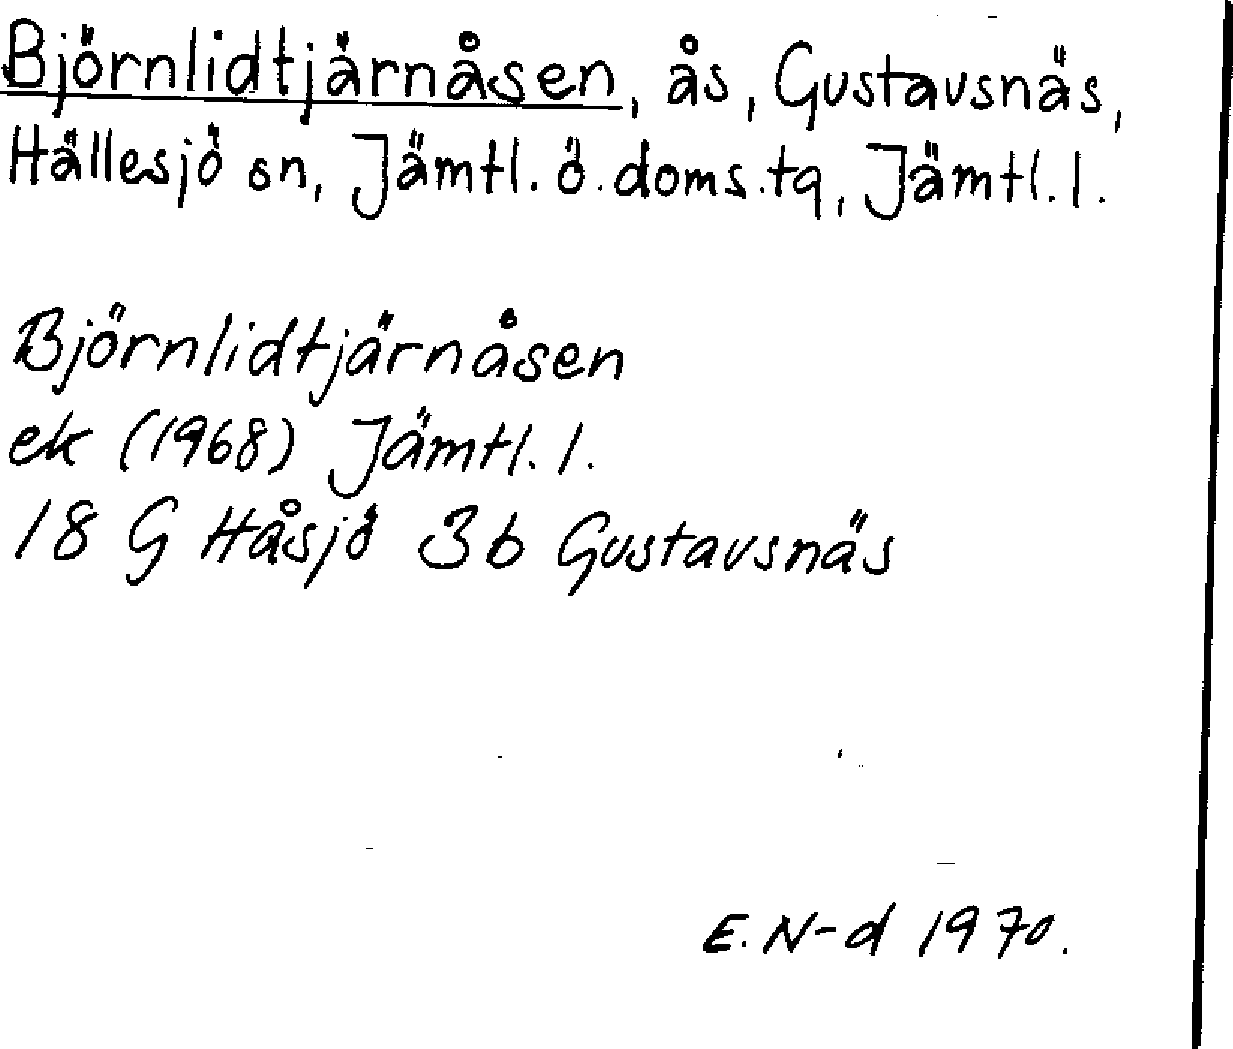 Björnlidtjärnåsen, ås, Gustavsnäs,
Hällesjö sn, Jämtl. ö. doms.tg, Jämtl. l.
Björnlidtjärnåsen
ek (1968) Jämtl. l.
18 G Håsjö 3b Gustavsnäs
E. N-d 1970.